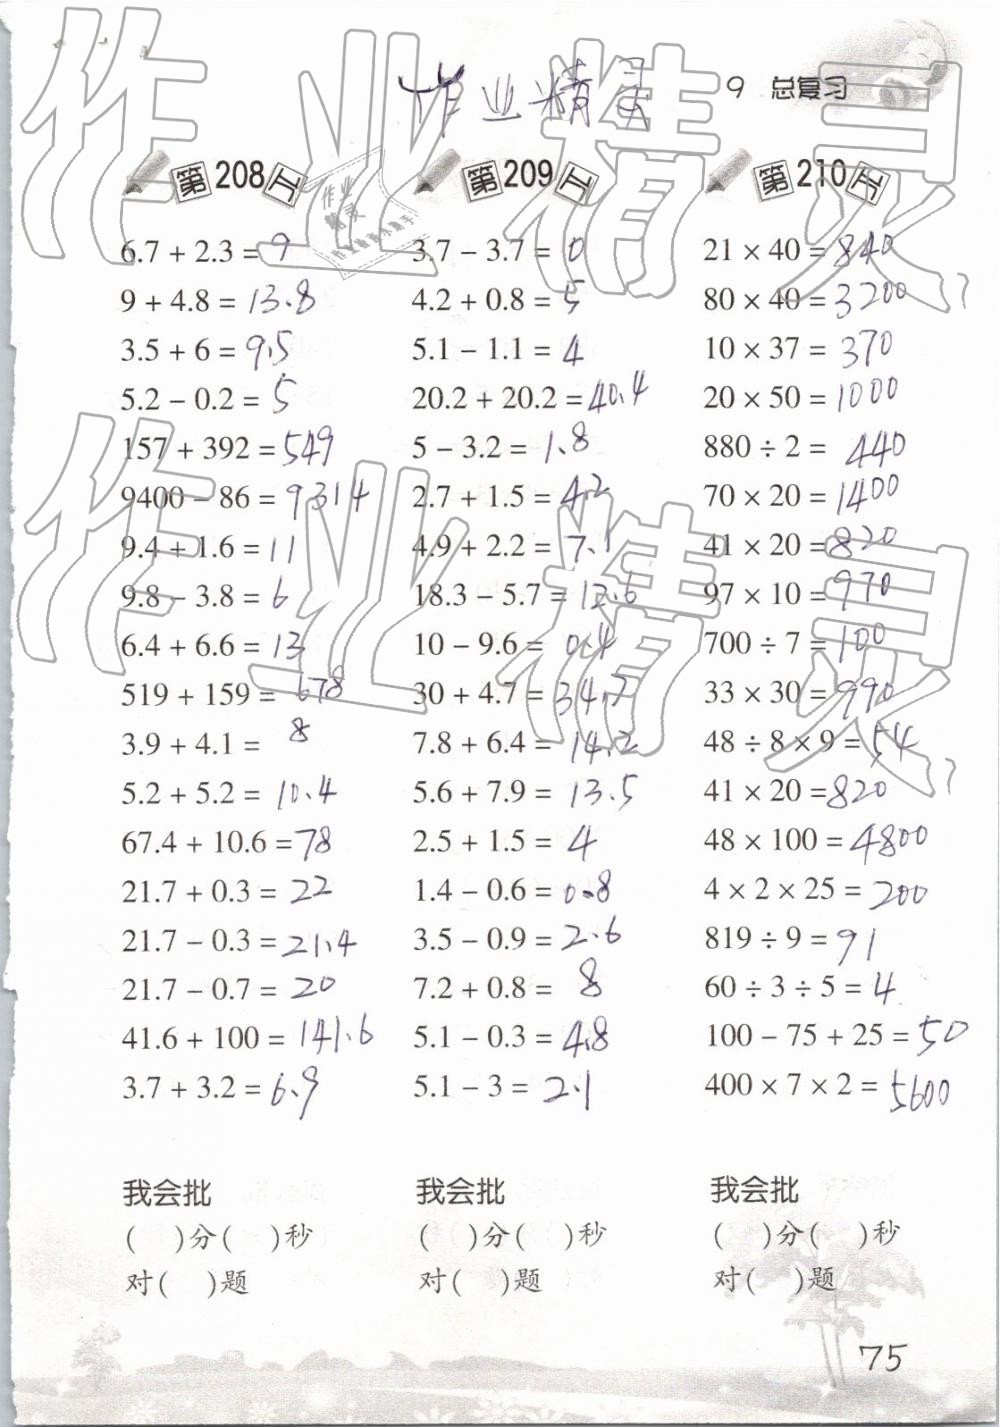 作业精灵
9 总复习
第208天
6.7 + 2.3 = 9
9 + 4.8 = 13.8
3.5 + 6 = 9.5
5.2 - 0.2 = 5
157 + 392 = 549
9400 - 86 = 9314
9.4 + 1.6 = 11
9.8 - 3.8 = 6
6.4 + 6.6 = 13
519 + 159 = 678
3.9 + 4.1 = 8
5.2 + 5.2 = 10.4
67.4 + 10.6 = 78
21.7 + 0.3 = 22
21.7 - 0.3 = 21.4
21.7 - 0.7 = 20
41.6 + 100 = 141.6
3.7 + 3.2 = 6.9
我会批
(  )分(  )秒
对(  )题
第209天
3.7 - 3.7 = 0
4.2 + 0.8 = 5
5.1 - 1.1 = 4
20.2 + 20.2 = 40.4
5 - 3.2 = 1.8
2.7 + 1.5 = 4.2
4.9 + 2.2 = 7.1
18.3 - 5.7 = 12.6
10 - 9.6 = 0.4
30 + 4.7 = 34.7
7.8 + 6.4 = 14.2
5.6 + 7.9 = 13.5
2.5 + 1.5 = 4
1.4 - 0.6 = 0.8
3.5 - 0.9 = 2.6
7.2 + 0.8 = 8
5.1 - 0.3 = 4.8
5.1 - 3 = 2.1
我会批
(  )分(  )秒
对(  )题
第210天
21 × 40 = 840
80 × 40 = 3200
10 × 37 = 370
20 × 50 = 1000
880 ÷ 2 = 440
70 × 20 = 1400
41 × 20 = 820
97 × 10 = 970
700 ÷ 7 = 100
33 × 30 = 990
48 ÷ 8 × 9 = 54
41 × 20 = 820
48 × 100 = 4800
4 × 2 × 25 = 200
819 ÷ 9 = 91
60 ÷ 3 ÷ 5 = 4
100 - 75 + 25 = 50
400 × 7 × 2 = 5600
我会批
(  )分(  )秒
对(  )题
75
作业精灵
作业精灵